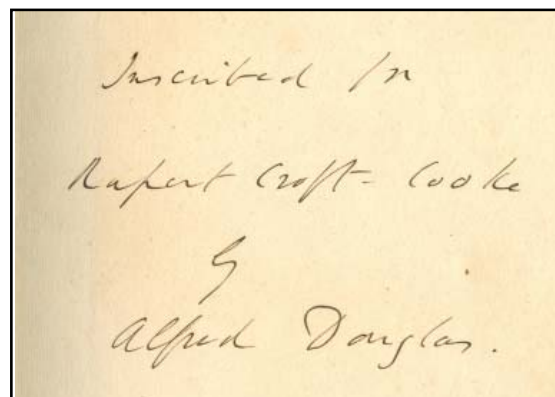 Inscribed for
Rupert Croft-Cooke
by
Alfred Douglas.